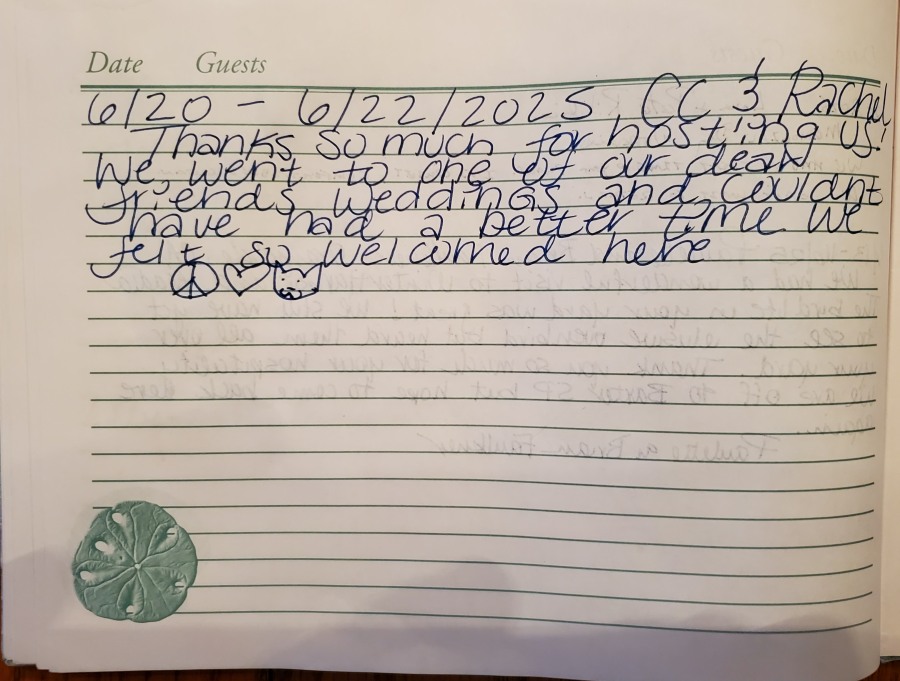 Date Guests
6/20 - 6/22/2025 CC & Rachel
Thanks so much for hosting us!
We went to one of our dear
friends weddings and couldnt
have had a better time we
felt so welcomed here